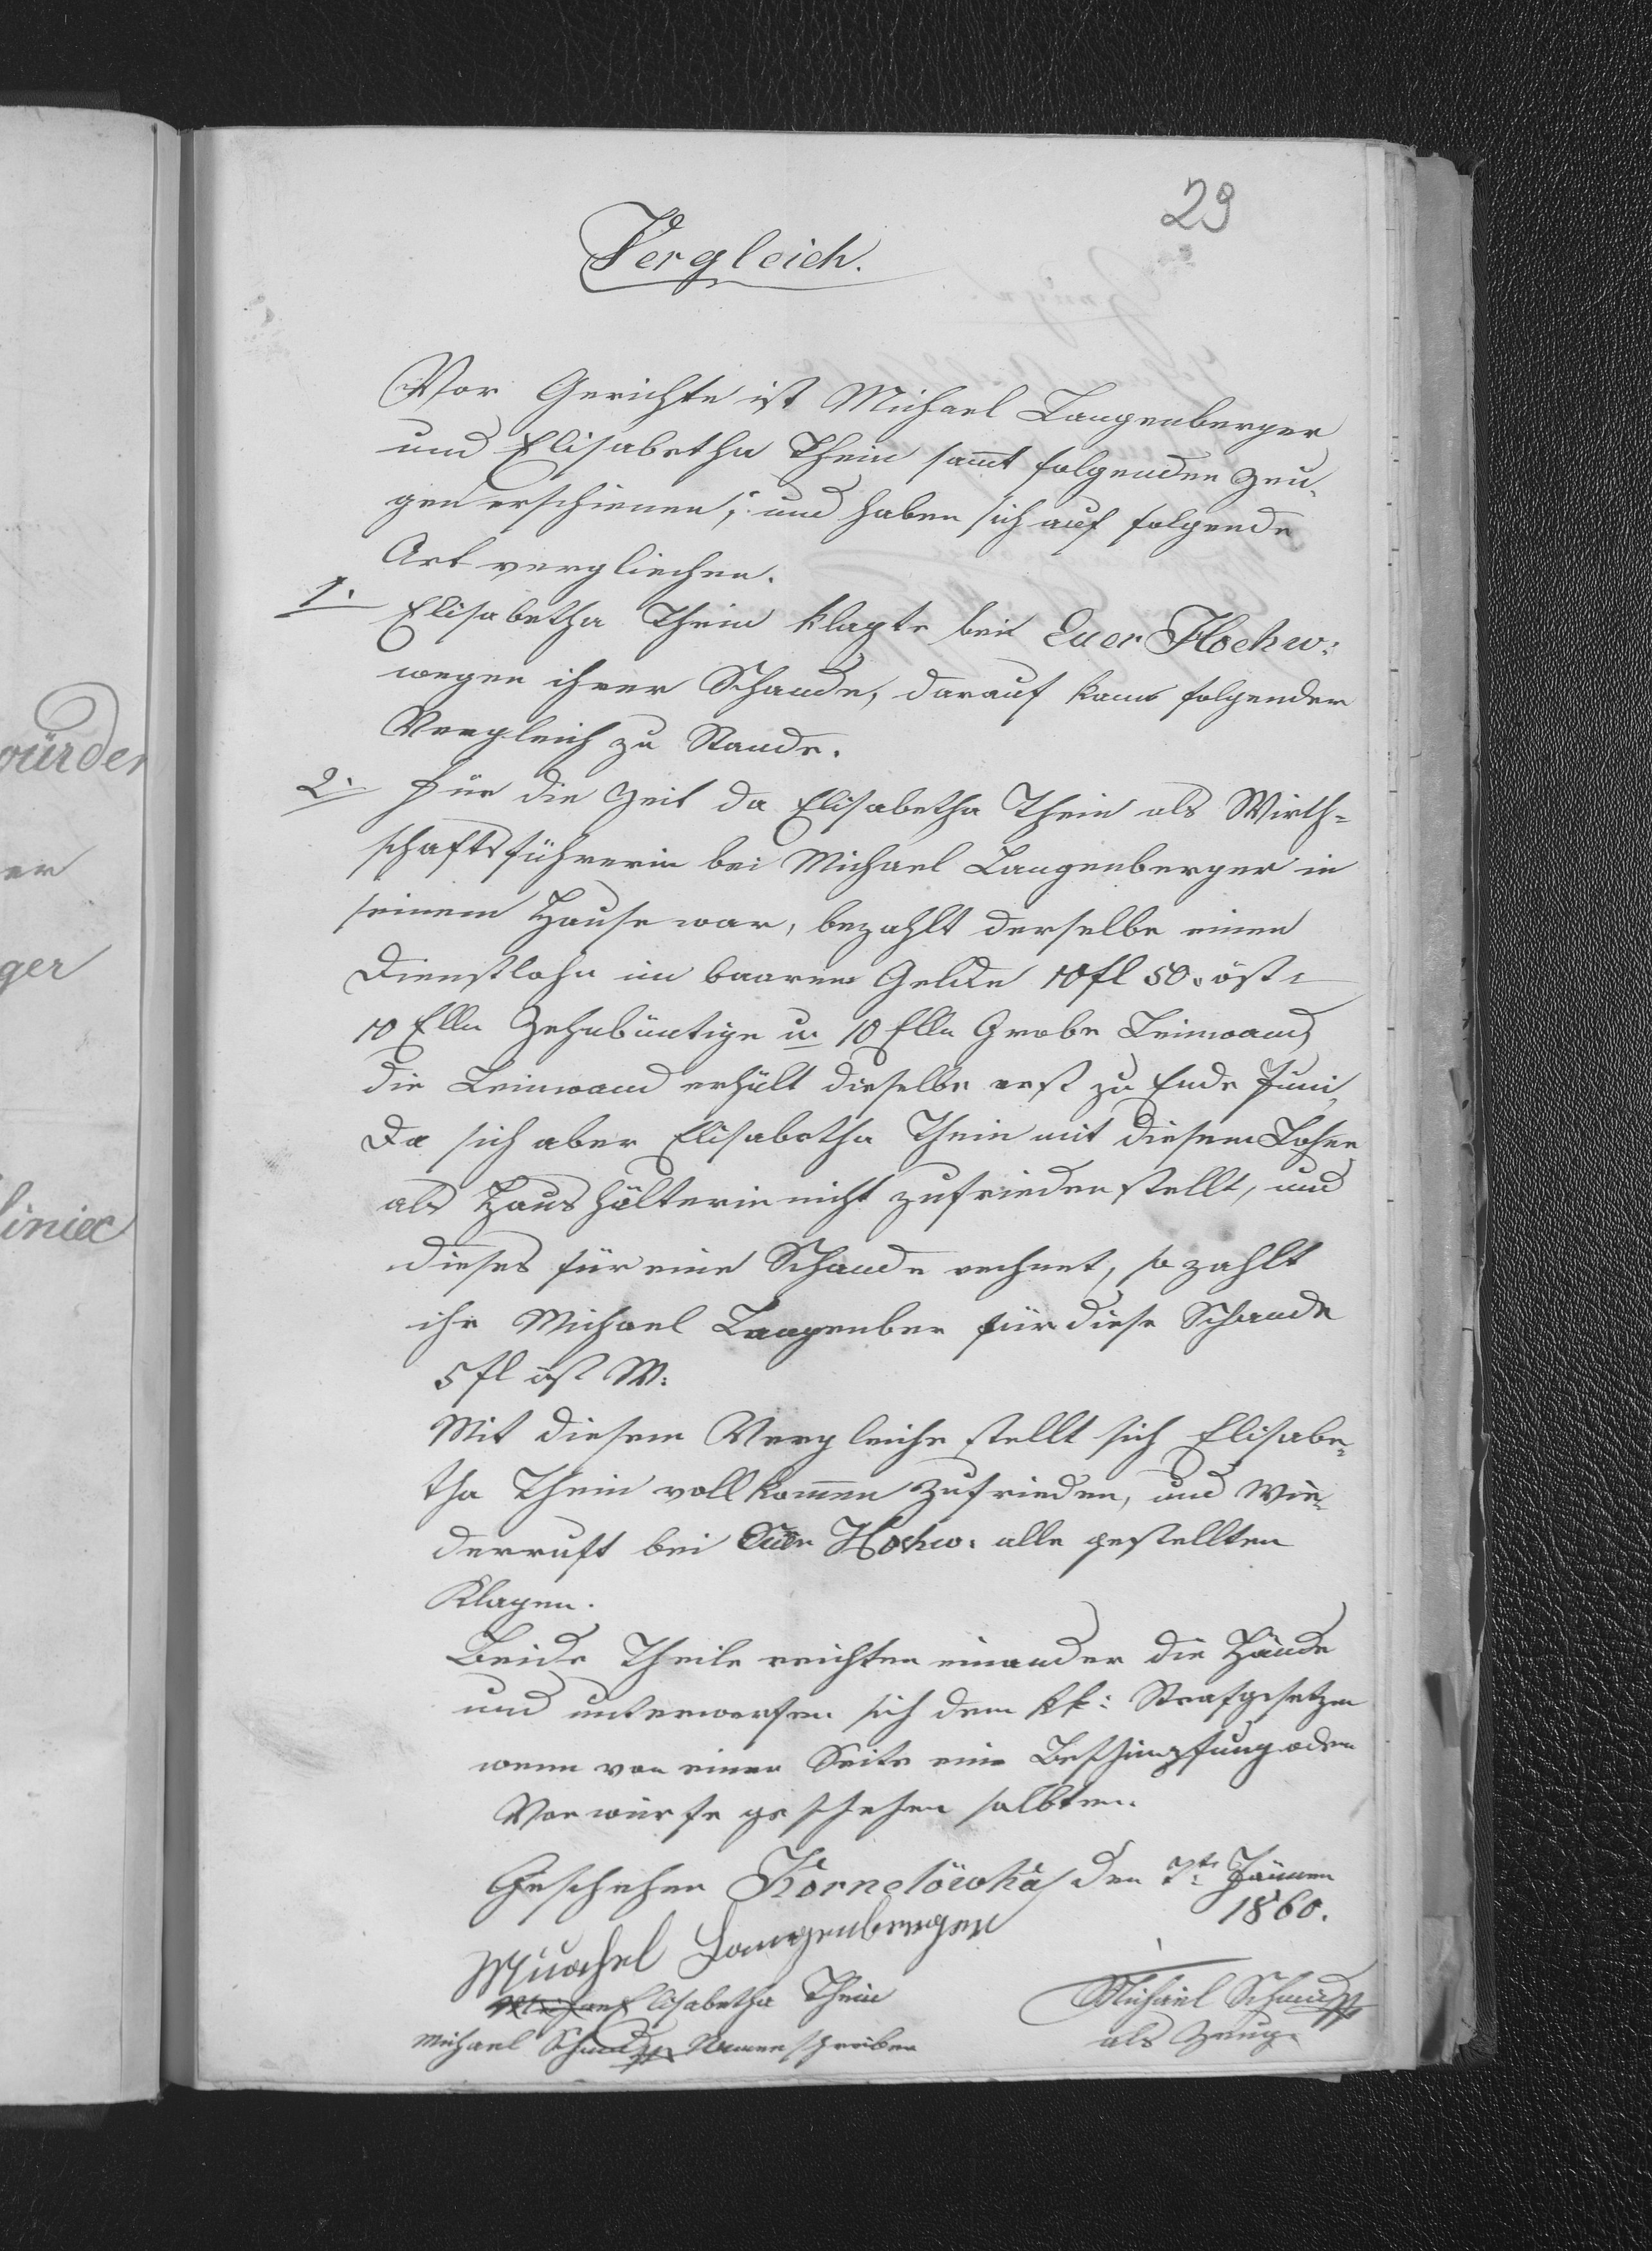 29
Vergleich.
Vor Gerichte ist Michael Langenberger
und Elisabetha Thein sammt folgenden Zeu-
gen erschienen; und haben sich auf folgende
Art verglichen.
1. Elisabetha Thein klagte bei Euer Hochw:
wegen ihrer Schande, darauf kam folgender
Vergleich zu Stande.
2. Für die Zeit da Elisabetha Thein als Wirth=
schaftsführerin bei Michael Langenberger in
seinem Hause war, bezahlt derselbe einen
Dienstlohn im baarem Gelde 10 fl 50 öst:
10 Elln Zehnbüntige u 10 Elln Grobe Leinwand
die Leinwand erhält dieselbe erst zu Ende Juni,
Da sich aber Elisabetha Thein mit diesem Lohne
als Haushälterin nicht zufrieden stellt, und
dieses für eine Schande rechnet, so zahlt
ihr Michael Langenber für diese Schande
5 fl öst W:
Mit diesem Vergleiche stellt sich Elisabe=
tha Thein vollkommen zufrieden, und wie-
derruft bei Euer Hochw. alle gestellten
Klagen.
Beide Theile reichten einander die Hände
und unterwerfen sich dem kk: Strafgesetzen
wenn von einer Seite eine Beschimpfung oder
Vorwürfe geschehen sollten.
Geschehen Kornelówka den 7t: Jänner
1860.
Michael Langenberger
Elisabetha Thein
Michael Namenschreiber
Michael
als Zeuge
würden
er
ger
iniec